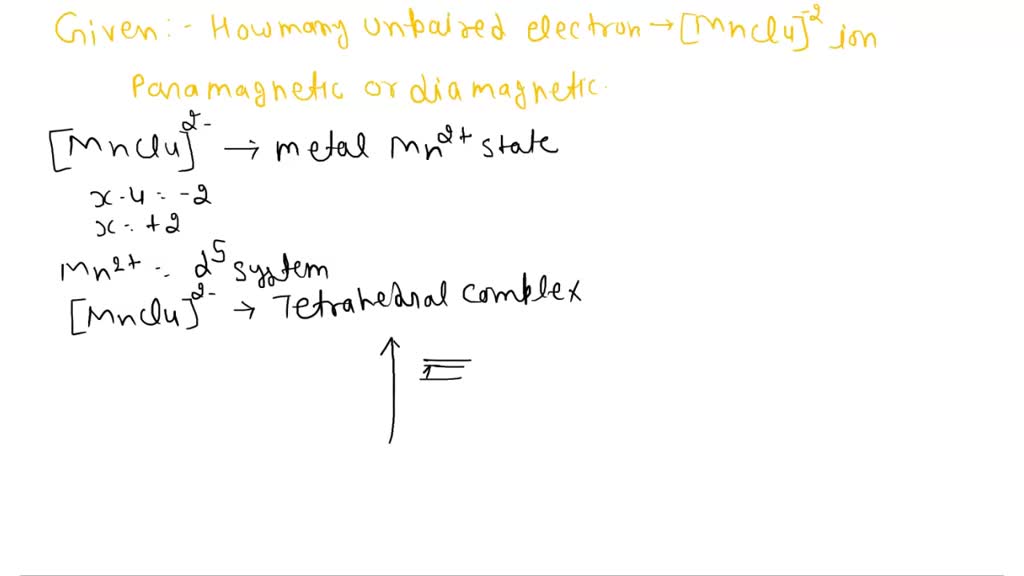 Given:- How many unpaired electron → [MnCl4]-2 ion
Paramagnetic or diamagnetic.
[MnCl4]2- → metal Mn2+ state
x-4 = -2
x = +2
Mn2+ = d5 system
[MnCl4]2- → Tetrahedral complex